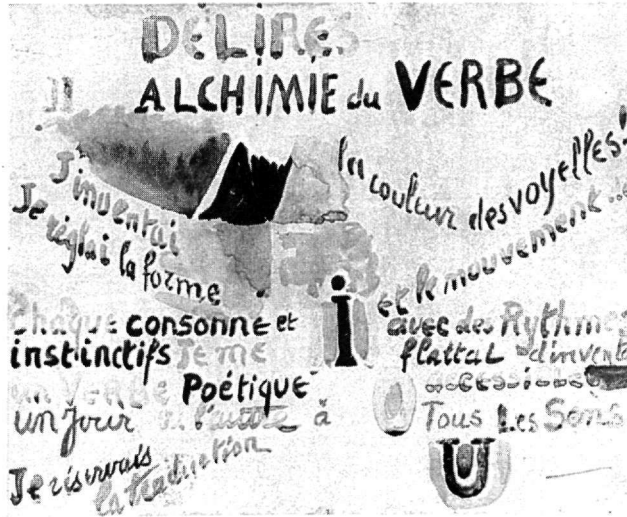 DÉLIRES
II ALCHIMIE du VERBE
J'inventai la couleur des voyelles!
Je réglai la forme et le mouvement de
Chaque consonne et avec des Rythmes
instinctifs Je me flattai d'invente
un VERBE Poétique accessible
un Jour ou l'autre à Tous Les Sens
Je réservais la traduction
i
U